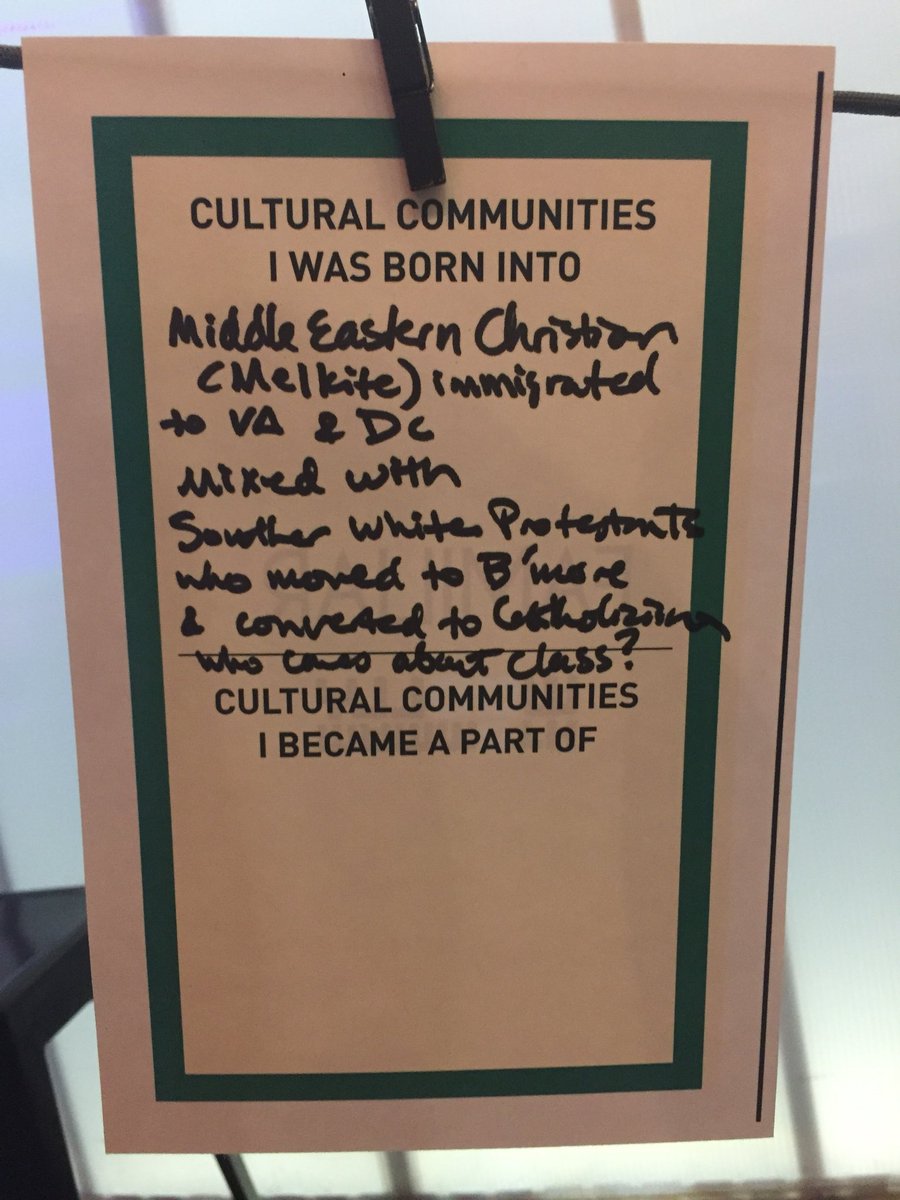 CULTURAL COMMUNITIES
I WAS BORN INTO
Middle Eastern Christian
(Melkite) immigrated
to VA & DC
Mixed with
Souther White Protestants
who moved to B'more
& converted to Catholizism
who cares about class?
CULTURAL COMMUNITIES
I BECAME A PART OF